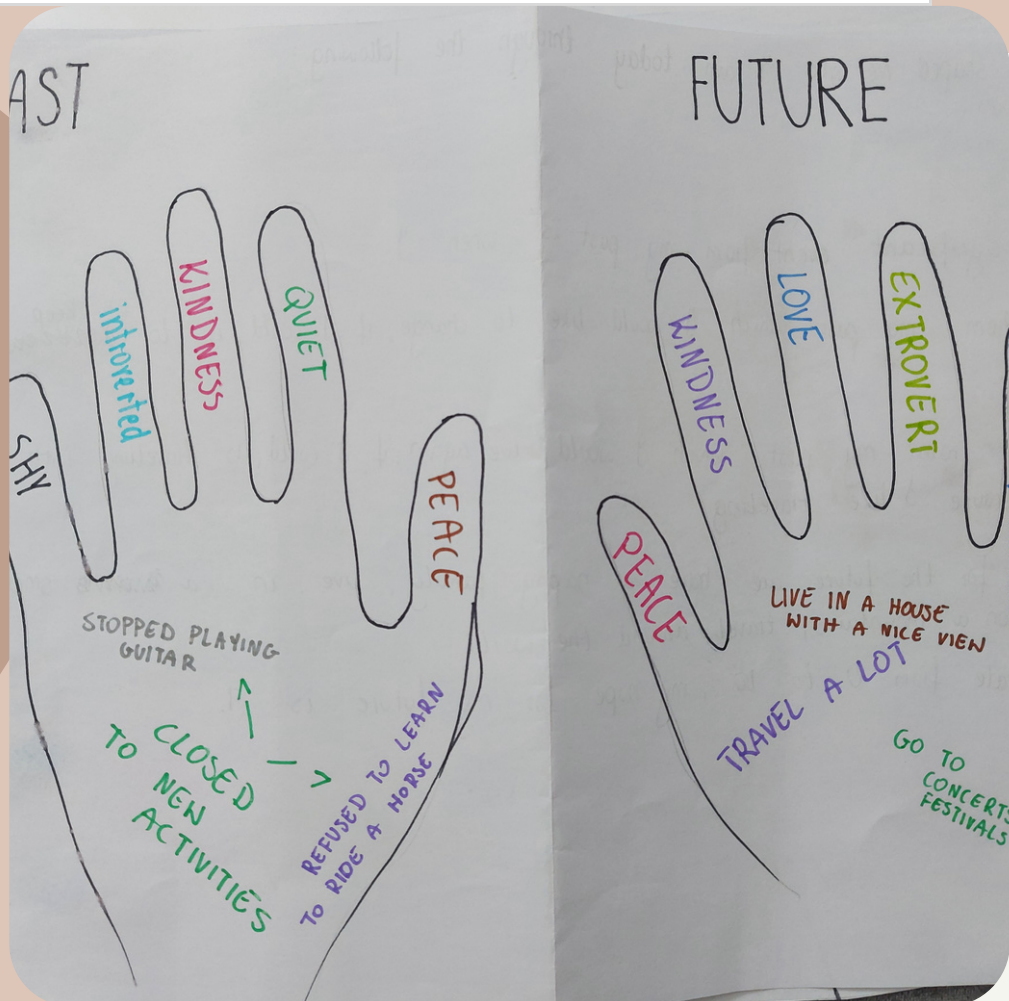 AST
SHY
introverted
KINDNESS
QUIET
PEACE
STOPPED PLAYING
GUITAR
CLOSED
TO NEW
ACTIVITIES
REFUSED TO LEARN
TO RIDE A HORSE
FUTURE
PEACE
KINDNESS
LOVE
EXTROVERT
LIVE IN A HOUSE
WITH A NICE VIEW
TRAVEL A LOT
GO TO
CONCERTS
FESTIVALS